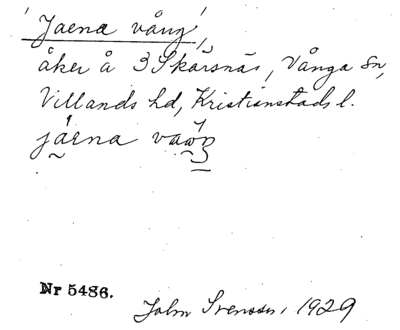 'Jaena vång',
åker å 3 Skärsnäs, Vånga sn,
Villands hd, Kristianstads l.
Nr 5486.
John Svensson, 1929